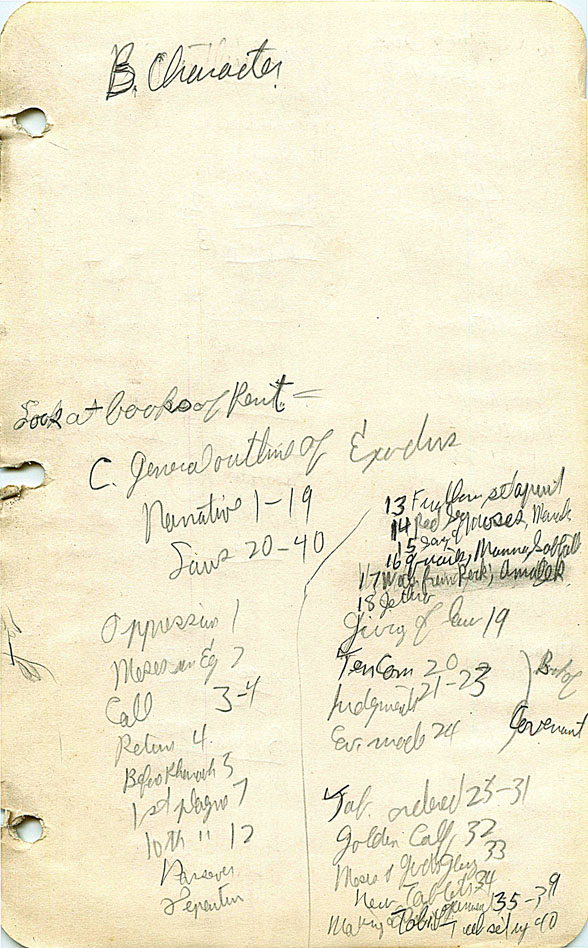 B. Character
Look at books of Pent =
C. General outline of Exodus
Narrative 1-19
Laws 20-40
Oppression 1
Moses in Eg 2
Call 3-4
Return 4.
Before Pharaoh 5
1st plague 7
10th " 12
Passover
Departure
13 set apart
14 Red Sea
15 Song of Moses, Marah
16 Quails, Manna, Sabbath
17 Water from Rock, Amalek
18 Jethro
Giving of Law 19
Ten Com 20
Judgments 21-23
24
B. of
Covenant
Tab. ordered 25-31
Golden Calf 32
Moses & God's glory 33
New Tablets 34
Making 35-39
set up 40